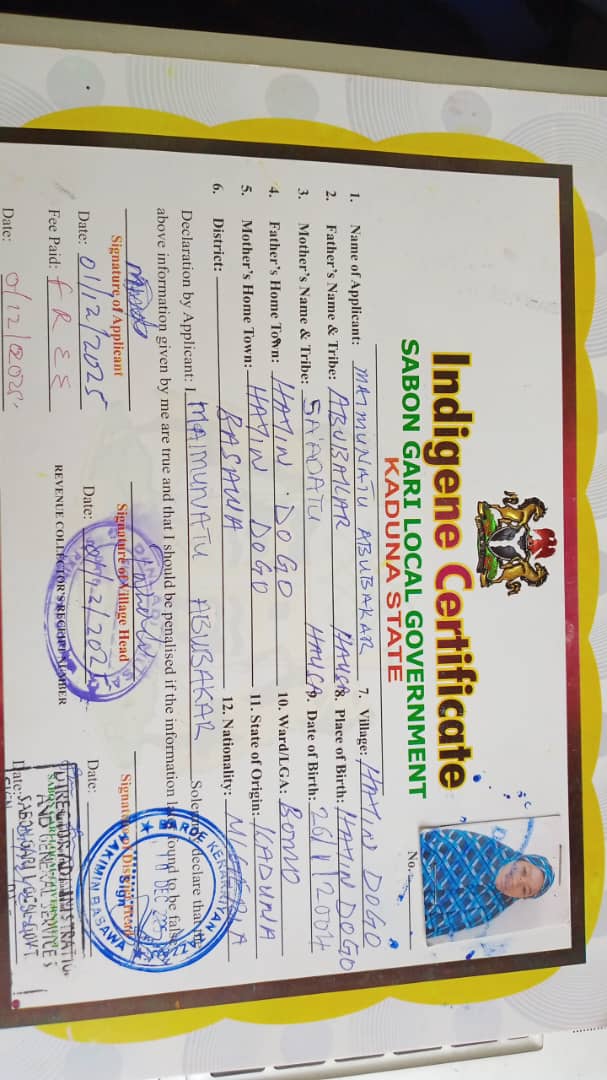 Indigene Certificate
SABON GARI LOCAL GOVERNMENT
KADUNA STATE
No.
1. Name of Applicant: MAIMUNATU ABUBAKAR
2. Father's Name & Tribe: ABUBAKAR HAUSA
3. Mother's Name & Tribe: SA'ADATU HAUSA
4. Father's Home Town: HAYIN DOGO
5. Mother's Home Town: HAYIN DOGO
6. District: BASAWA
7. Village: HAYIN DOGO
8. Place of Birth: HAYIN DOGO
9. Date of Birth: 26/1/2004
10. Ward/LGA: BOMO
11. State of Origin: KADUNA
12. Nationality: NIGERIA
Declaration by Applicant: I MAIMUNATU ABUBAKAR Solemnly declare that the
above information given by me are true and that I should be penalised if the information is found to be false
Signature of Applicant
Date: 01/12/2025
Signature of Village Head
Date: /12/2025
Signature of District Head
Date:
HAKIMIN BASAWA
Sign
DEC 2025
Fee Paid: FREE
REVENUE COLLECTOR'S RECEIPT NUMBER
Date: 01/12/2025
Date:
DIRECTOR ADMINISTRATION
AND GENERAL SERVICES
SABON GARI LOCAL GOVT